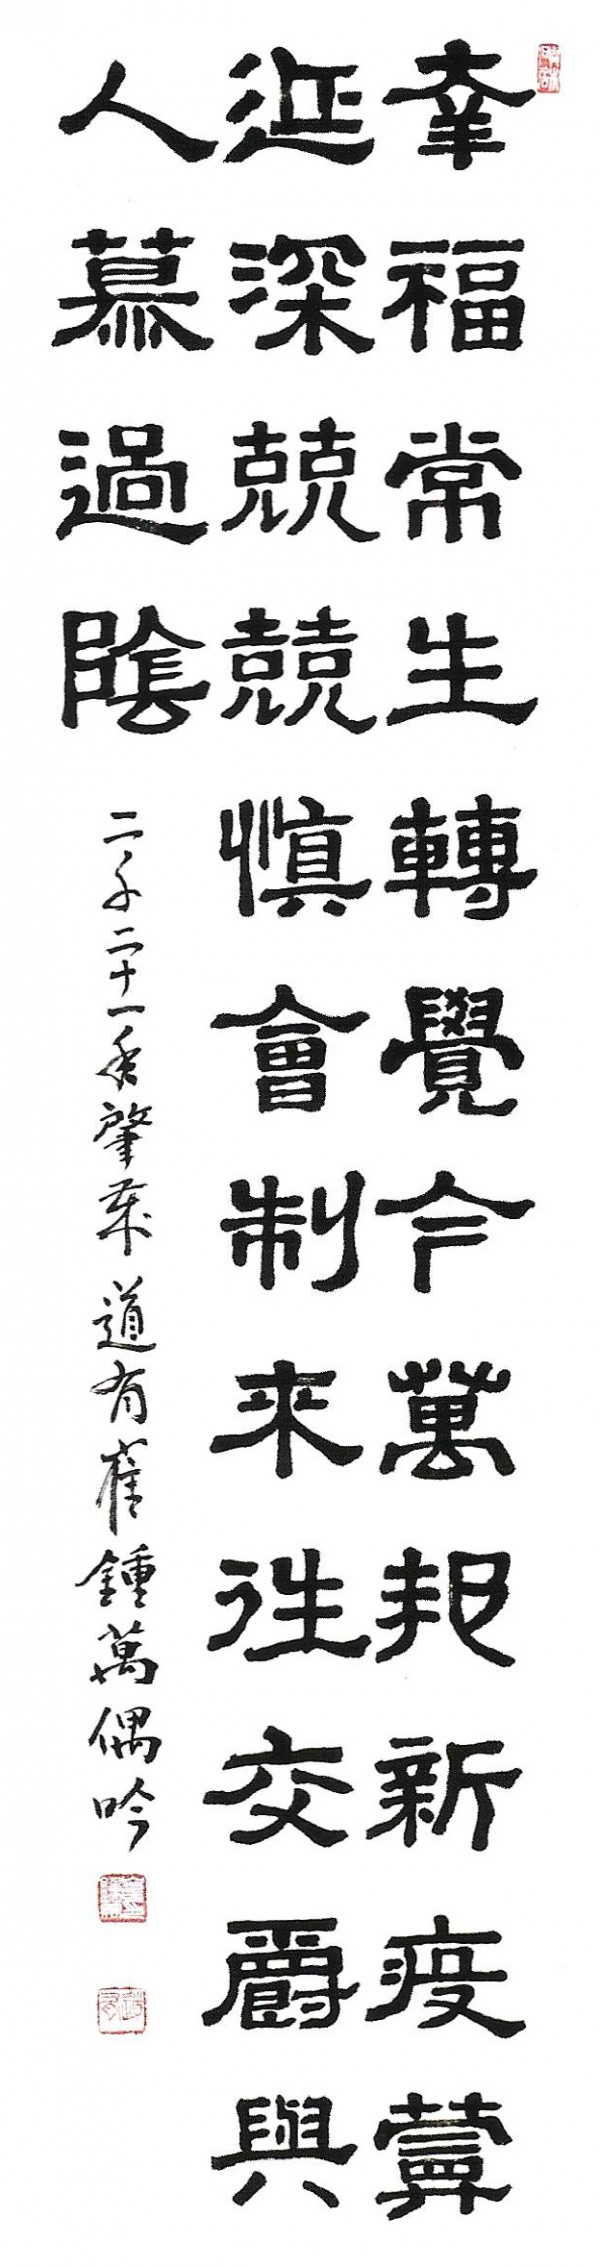 幸福常生轉覺今萬邦新疫
延深兢兢愼會制來往交爵與
人慕過陰
二千二十一年肇 道有崔鍾萬偶吟